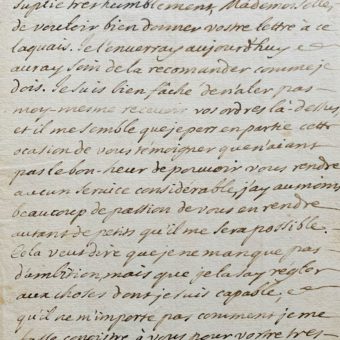 suplie treshumblement, Mademoiselle,
de vouloir bien donner vostre lettre à ce
laquais. Je l'enverray aujourd'huy, e
auray soin de la recomander comme je
dois. Je suis bien fâché de n'aler pas
moy-mesme recevoir vos ordres là-dessus
et il me semble que je pers en partie cette
ocasion de vous témoigner que n'aiant
pas le bon-heur de pouvoir vous rendre
aucun service considerable, j'ay au moins
beaucoup de passion de vous en rendre
autant de petits qu'il me sera possible.
Cela veut dire que je ne manque pas
d'ambition, mais que je la say regler
aux choses dont je suis capable, e
qu'il ne m'importe pas comment je me
fasse conoistre à vous pour vostre tres